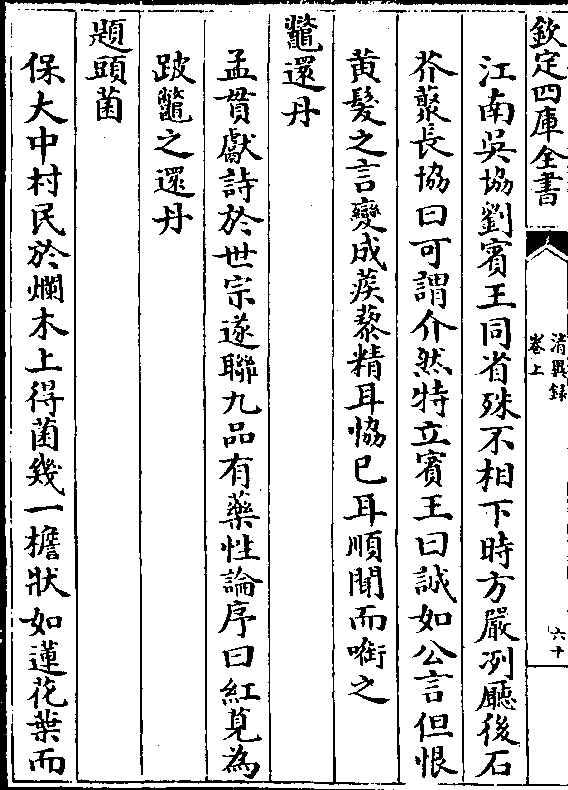 欽定四庫全書
清異録
卷上
六十
江南吳協劉賓王同省殊不相下時方嚴冽廳後石
芥藂長協曰可謂介然特立賓王曰誠如公言但恨
黄髮之言變成蒺藜精耳恊巳耳順聞而㗸之
鼈還丹
孟貫獻詩於世宗遂聯九品有藥性論序曰紅莧為
跛鼈之還丹
題頭菌
保大中村民於爛木上得菌幾一檐狀如蓮花葉而